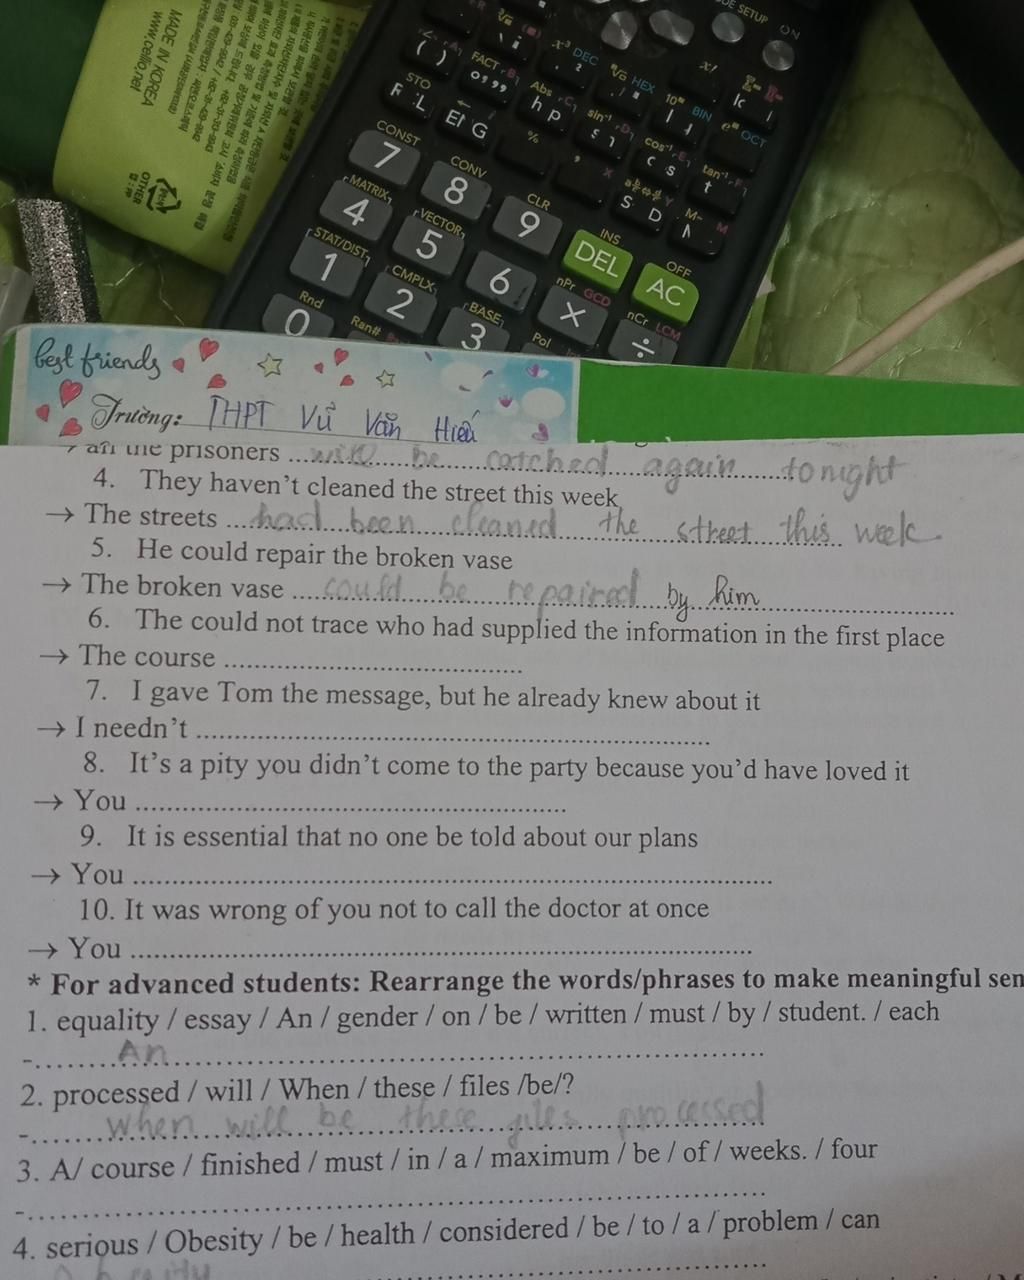 MADE IN KOREA
www.cellio.net
OTHER
SETUP ON
FACT
DEC
HEX
BIN
OCT
STO
Abs
sin⁻¹
cos⁻¹
tan⁻¹
CONST
CONV
CLR
7 8 9
INS OFF
DEL AC
MATRIX
VECTOR
4 5 6
nPr GCD
nCr LCM
× ÷
STAT/DIST
CMPLX
BASE
1 2 3
Rnd Ran# Pol
0
best friends
Trường: THPT Vũ Văn Hiếu
→ all the prisoners ...will be catched again tonight
4. They haven't cleaned the street this week
→ The streets ...had been cleaned the street this week.
5. He could repair the broken vase
→ The broken vase ...could be repaired by him
6. The could not trace who had supplied the information in the first place
→ The course ...
7. I gave Tom the message, but he already knew about it
→ I needn't ...
8. It's a pity you didn't come to the party because you'd have loved it
→ You ...
9. It is essential that no one be told about our plans
→ You ...
10. It was wrong of you not to call the doctor at once
→ You ...
* For advanced students: Rearrange the words/phrases to make meaningful sen
1. equality / essay / An / gender / on / be / written / must / by / student. / each
- ...An...
2. processed / will / When / these / files /be/?
- ...When will be these files processed
3. A/ course / finished / must / in / a / maximum / be / of / weeks. / four
- ...
4. serious / Obesity / be / health / considered / be / to / a / problem / can